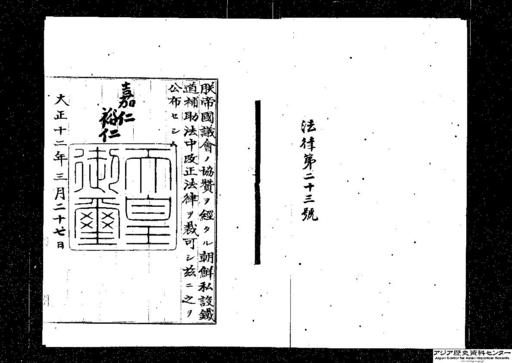 法律第二十三號
朕帝國議會ノ協贊ヲ經タル朝鮮私設鐵
道補助法中改正法律ヲ裁可シ茲ニ之ヲ
公布セシム
嘉仁
裕仁
天皇
御璽
大正十二年三月二十七日
アジア歴史資料センター
Japan Center for Asian Historical Records